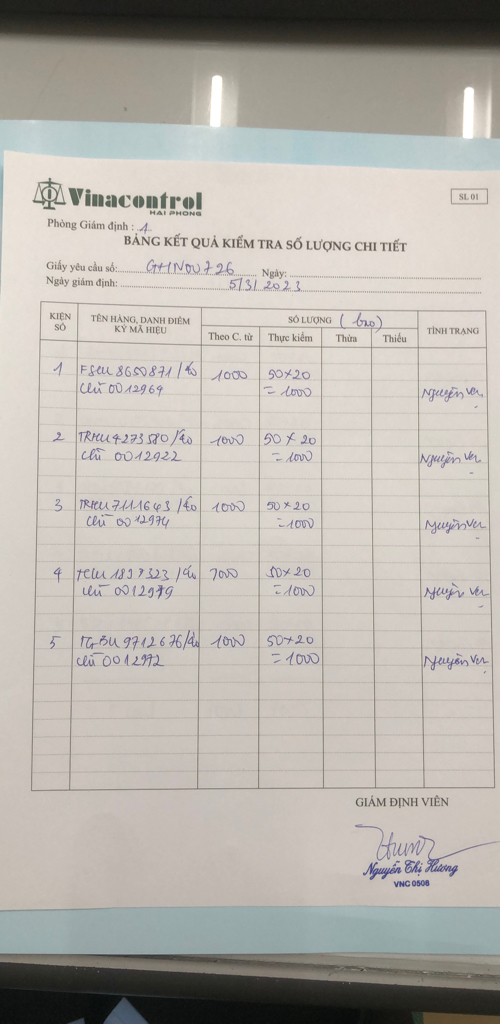 Vinacontrol
HAI PHONG
SL 01
Phòng Giám định : 1
BẢNG KẾT QUẢ KIỂM TRA SỐ LƯỢNG CHI TIẾT
Giấy yêu cầu số: GHN00726 Ngày:
Ngày giám định: 5/3/2023
KIỆN SỐ
TÊN HÀNG, DANH ĐIỂM KÝ MÃ HIỆU
SỐ LƯỢNG (bao)
TÌNH TRẠNG
Theo C. từ Thực kiểm Thừa Thiếu
1 FSCU 8650871/40 1000 50×20
chì 0012969 = 1000 Nguyên vẹn
2 TRHU 4273580/40 1000 50×20
chì 0012922 = 1000 Nguyên vẹn
3 TRHU 7111643/40 1000 50×20
chì 0012974 = 1000 Nguyên vẹn
4 1000 50×20
chì = 1000 Nguyên vẹn
5 TGBU 9712676/40 1000 50×20
chì 0012972 = 1000 Nguyên vẹn
GIÁM ĐỊNH VIÊN
Nguyễn Thị Hương
VNC 0506